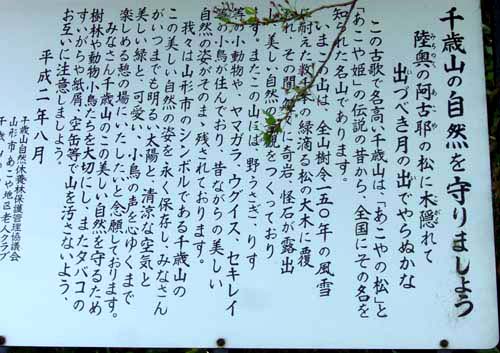 千歳山の自然を守りましょう
陸奥の阿古耶の松に木隠れて
出づべき月の出でやらぬかな
この古歌で名高い千歳山は、「あこやの松」と
「あこや姫」の伝説の昔から、全国にその名を
知られた名山であります。
いまこの山は、全山樹令一五〇年の風雪
耐えた数千本の緑滴る松の大木に覆
れ、その間 奇岩、怪石が露出
美しい自然の をつくっており
ます。またこの山には、野うさぎ、りす
等の小動物や、ヤマガラ、ウグイス、セキレイ
の小鳥が住んでおり、昔ながらの美しい
自然の姿がそのまゝ残されております。
我々は山形市のシンボルである千歳山の
この美しい自然の姿を永く保存し、みなさん
がいつまでも明るい太陽と、清涼な空気と
美しい緑と、可愛い、小鳥の声を心ゆくまで
楽しめる憩の場にいたしたいと念願しております。
みなさん千歳山のこの美しい自然を守るため
樹林や動物小鳥たちを大切にし、またタバコの
すいがらや紙屑、空缶等で山を汚さないよう、
お互いに注意しましょう。
平成二年八月
千歳山自然休養林保護管理協議会
山形市あこや地区老人クラブ
千歳